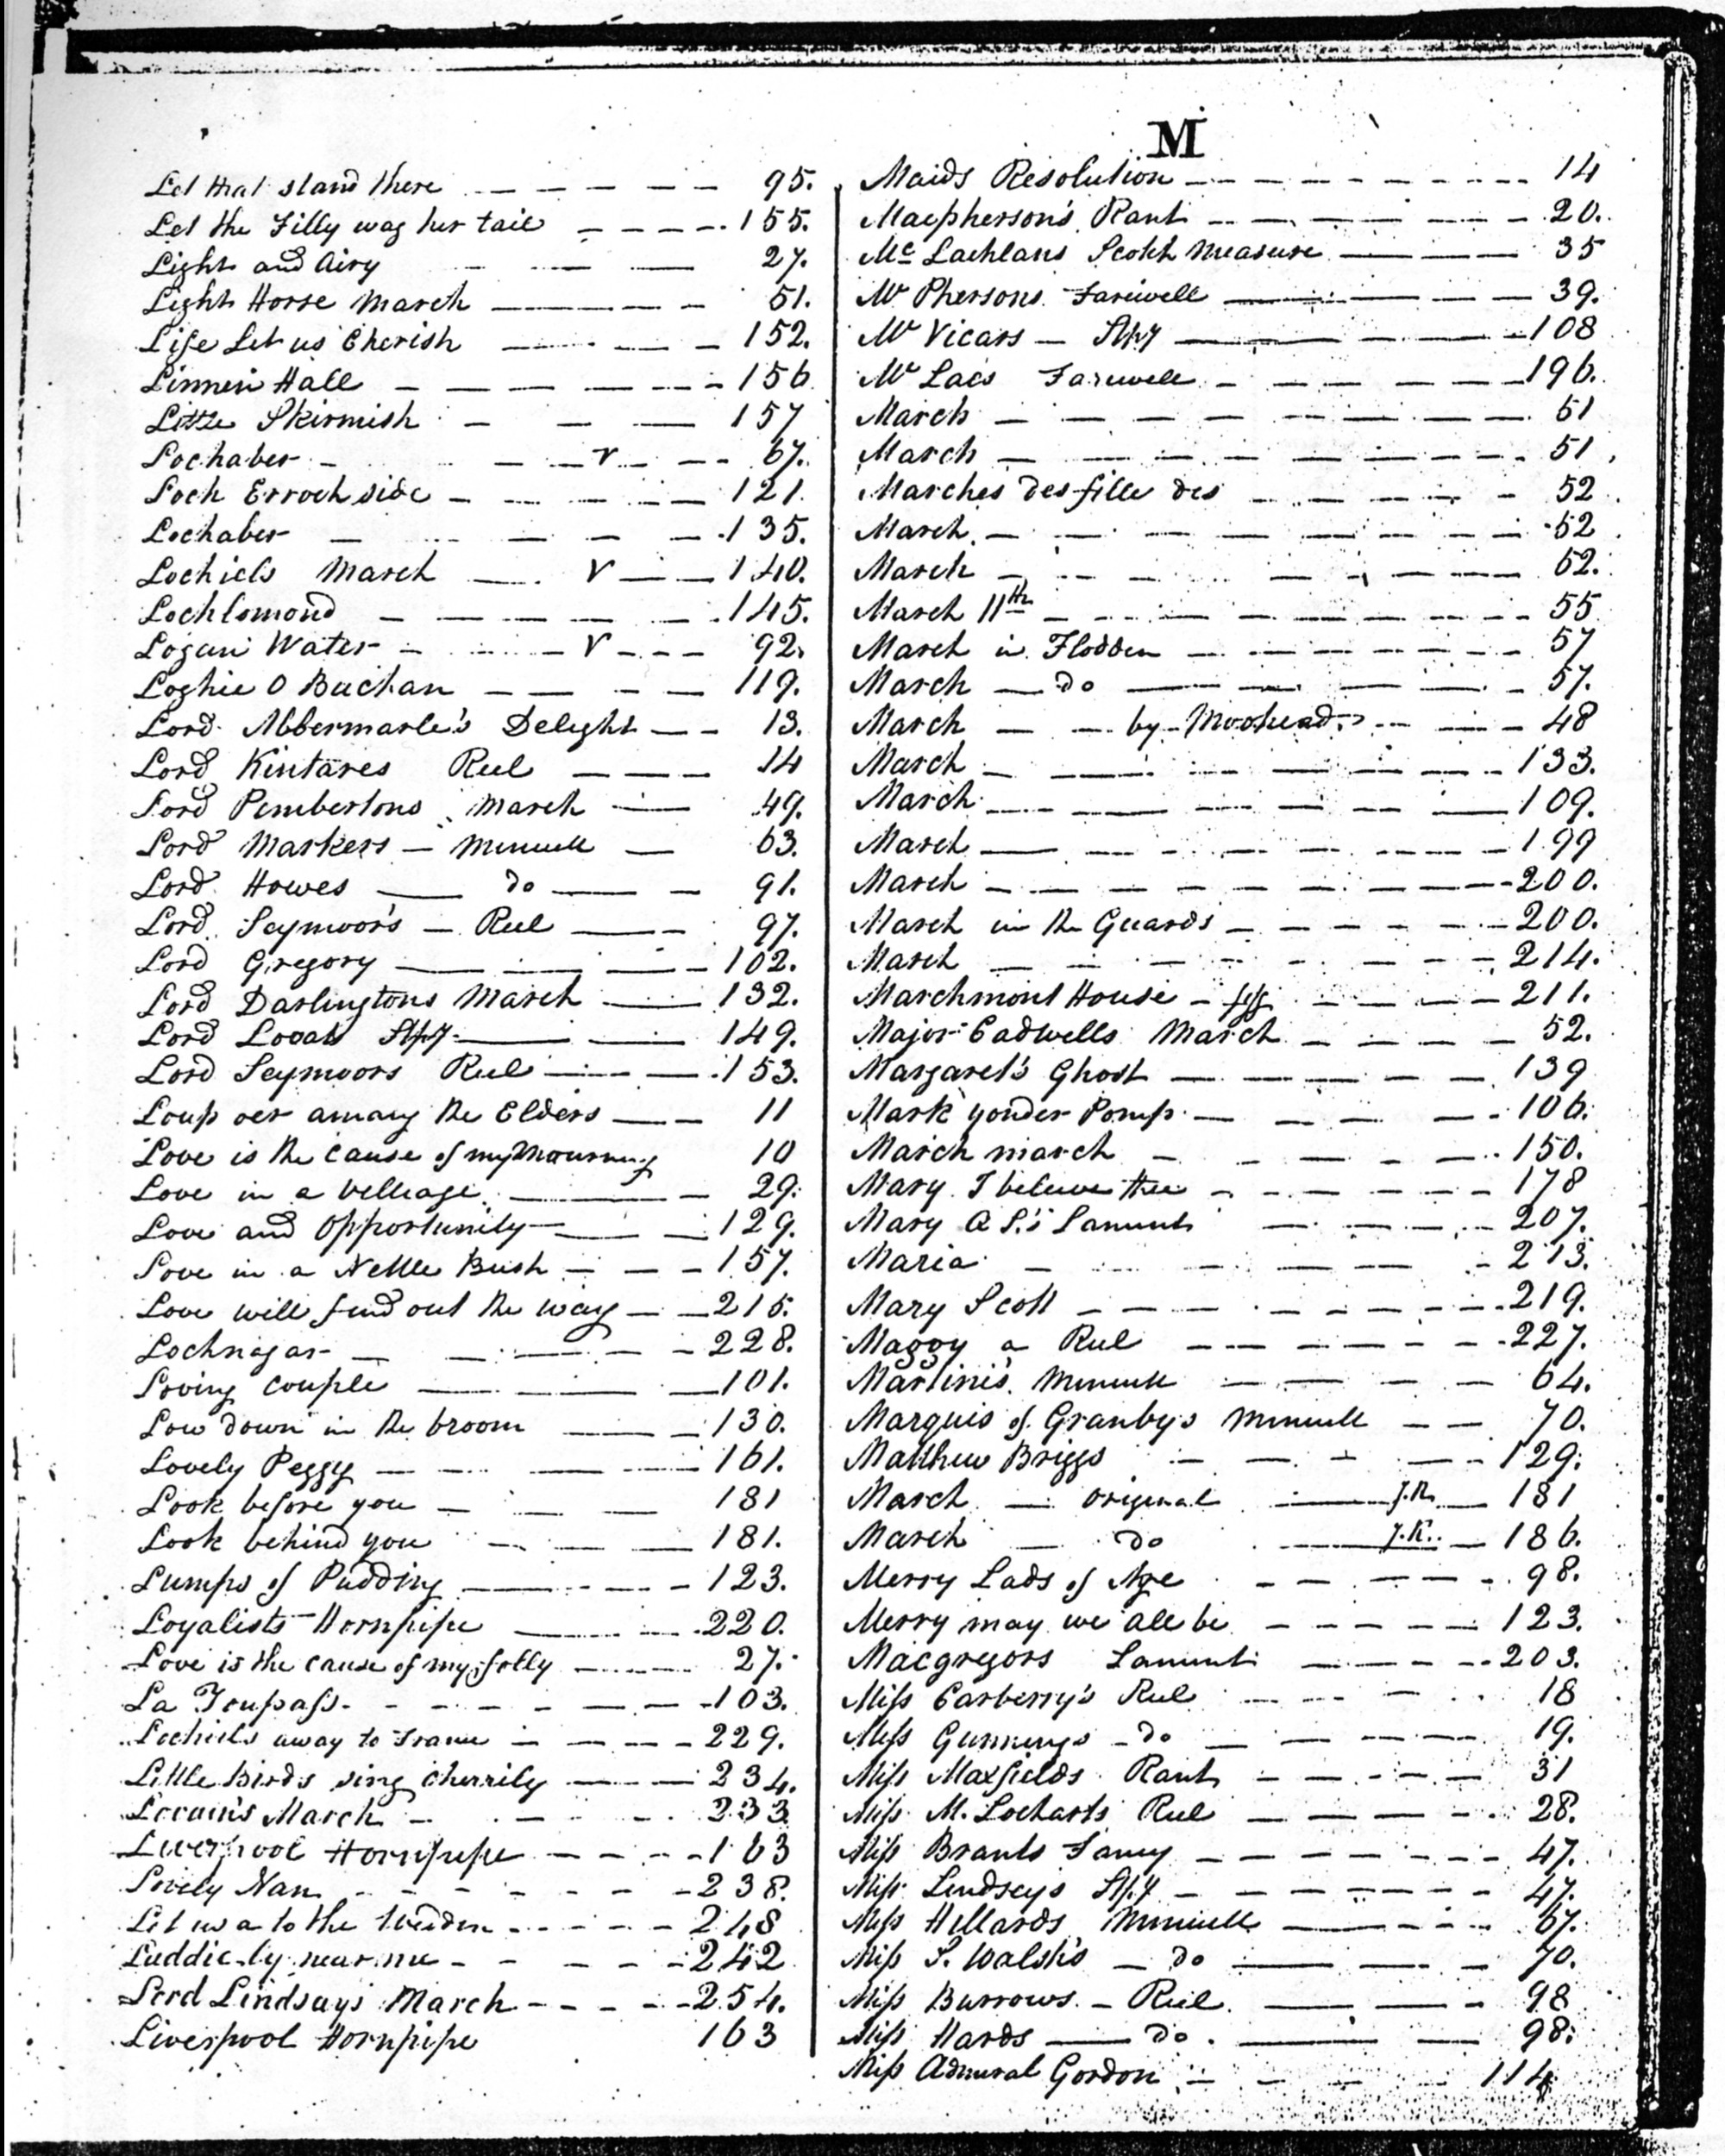 Let that stand there 95.
Let the Filly wag her tail 155.
Light and Airy 27.
Light Horse March 51.
Life Let us Cherish 152.
Linnen Hall 156
Little Skirmish 157
Lochaber V 67.
Loch Erroch side 121.
Lochaber 135.
Lochiels March V 140.
Lochlomond 145.
Logan Water V 92.
Loghie O Buchan 119.
Lord Abbermarle's Delight 13.
Lord Kintares Reel 14
Lord Pembertons March 49.
Lord Markers Minuett 63.
Lord Howes do 91.
Lord Seymoor's Reel 97.
Lord Gregory 102.
Lord Darlingtons March 132.
Lord Lovats Spy 149.
Lord Seymoors Reel 153.
Loup oer amang the Elders 11
Love is the cause of my Mourning 10
Love in a Velleage 29.
Love and Opportunity 129.
Love in a Nettle Bush 157.
Love will find out the way 215.
Lochnagar 228.
Loving couple 101.
Low down in the broom 130.
Lovely Peggy 161.
Look before you 181
Look behind you 181.
Lumps of Pudding 123.
Loyalists Hornpipe 220.
Love is the cause of my folly 27.
La Trupass 103.
Lochiels away to France 229.
Little Birds sing cherrily 234.
March 233
Liverpool Hornpipe 163
Lovely Nan 238.
Let us a to the 248
Luddie ly near me 242
Lord Lindsays March 254.
Liverpool Hornpipe 163
M
Maids Resolution 14
Macpherson's Rant 20.
Mc Lachlans Scotch Measure 35
Mc Phersons Farewell 39.
Mc Vicars Spy 108
Mc Laes Farewell 196.
March 51
March 51
Marches des fille des 52
March 52
March 52.
March 11th 55
March in Flodden 57
March do 57.
March by Moohead 48
March 133.
March 109.
March 199
March 200.
March in the Guards 200.
March 214.
Marchmont House 211.
Major Cadwells March 52.
Margaret's Ghost 139
Mark yonder Pomp 106.
March march 150.
Mary I beleive thee 178
Mary Q S.'s Lament 207.
Maria 213.
Mary Scott 219.
Maggy a Reel 227.
Martini's Minuett 64.
Marquis of Granbys Minuett 70.
Matthew Briggs 129.
March original J.R. 181
March do J.R. 186.
Merry Lads of Ayre 98.
Merry may we all be 123.
Macgregors Lament 203.
Miss Carberry's Reel 18
Miss Gunnings do 19.
Miss Maxfields Rant 31
Miss M. Locharts Reel 28.
Miss Brants Fancy 47.
Miss Lindseys Spy 47.
Miss Hillards Minuett 67.
Miss S. Walsh's do 70.
Miss Burrows Reel 98
Miss Hards do 98.
Miss Admiral Gordon 114